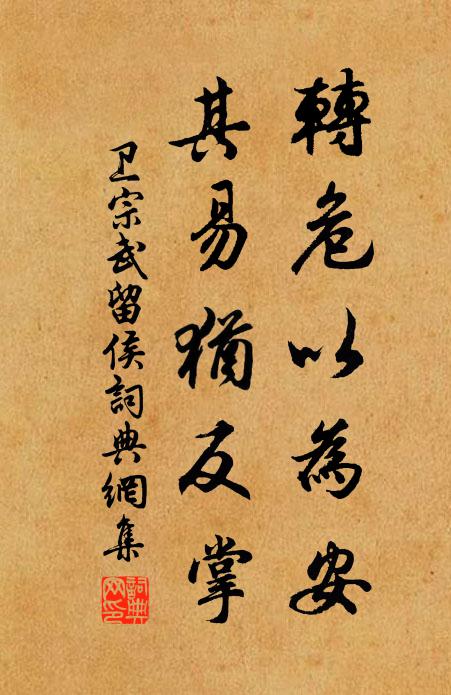 轉危以為安
其易猶反掌
卫宗武留侯詞典網集
詞典
网印